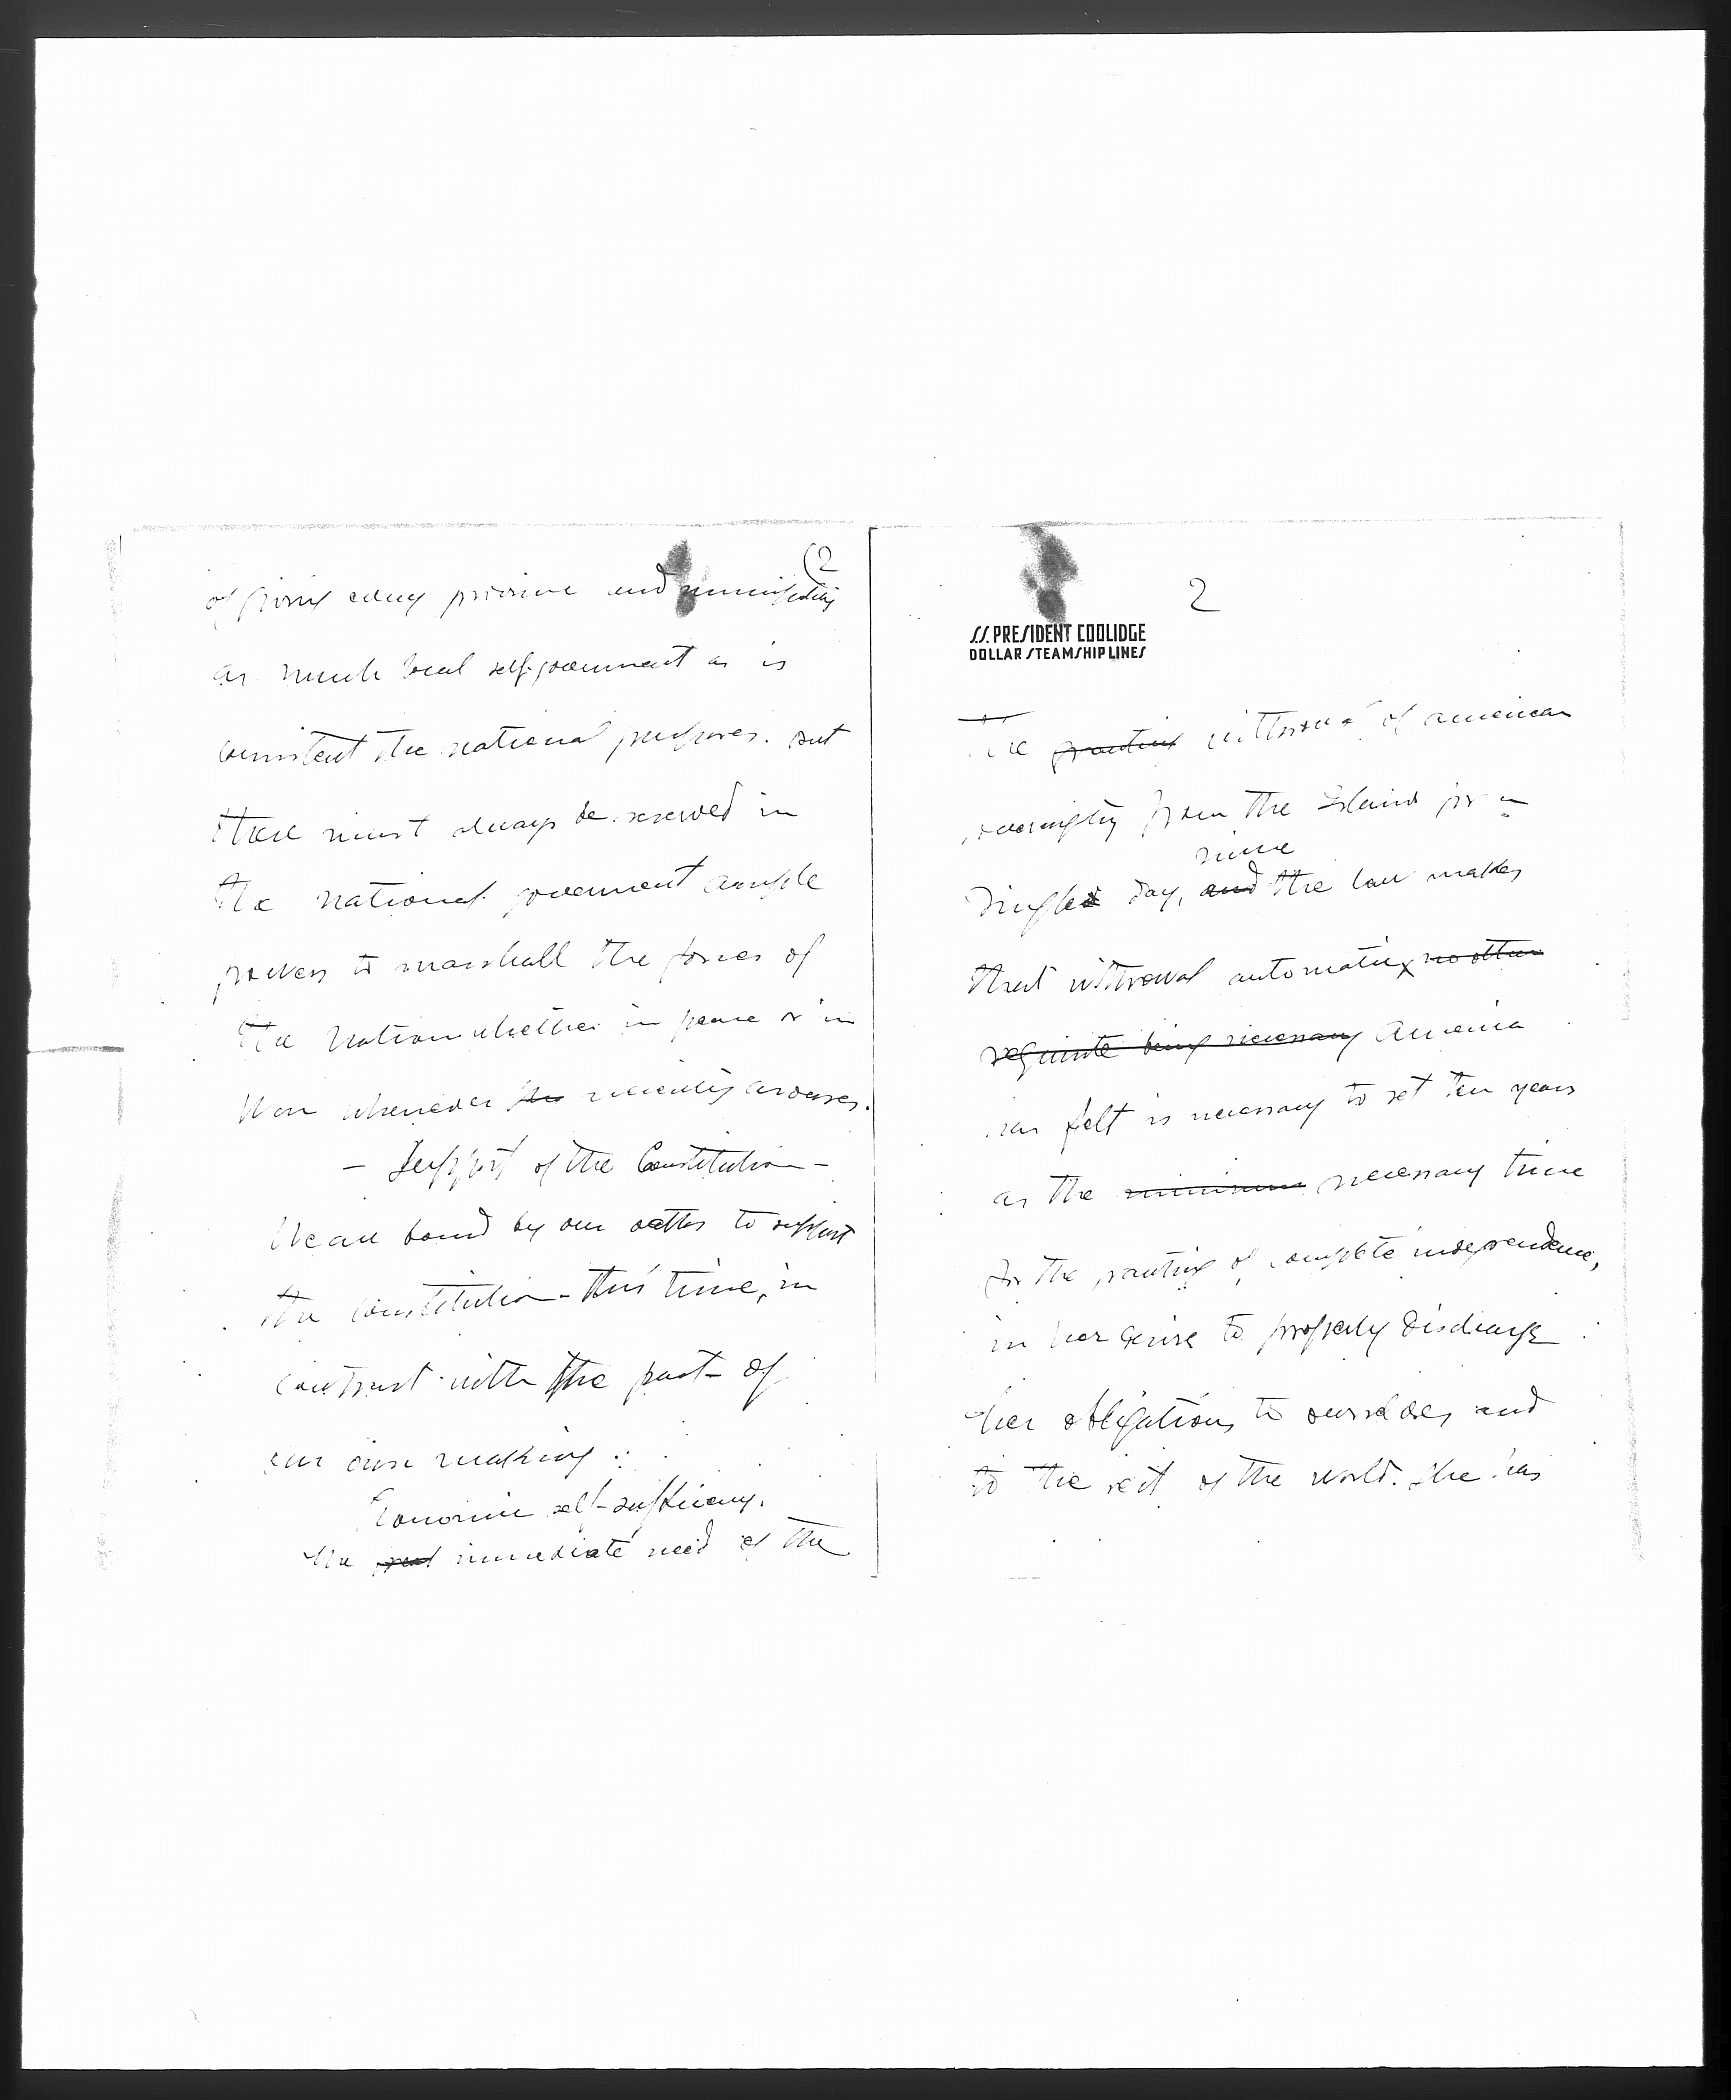 (2
of giving every province and municipality
as much local self-government as is
consistent the national purposes. But
there must always be reserved in
the national government ample
powers to marshall the forces of
the Nation whether in peace or in
War whenever the necessity arouses.
- Support of the Constitution -
We are bound by our oaths to support
the constitution - this time, in
contrast with the past - of
our own making.
Economic self-sufficiency.
The real immediate need of the
2
S.S. PRESIDENT COOLIDGE
DOLLAR STEAMSHIP LINES
The granting withdrawal of American
sovereignty from the Islands for a
since
single day, and the law makes
that withdrawal automatic, no other
requisite being necessary America
has felt is necessary to set ten years
as the minimum necessary time
for the granting of complete independence,
in her desire to properly discharge
her obligations to ourselves and
to the rest of the world. She has